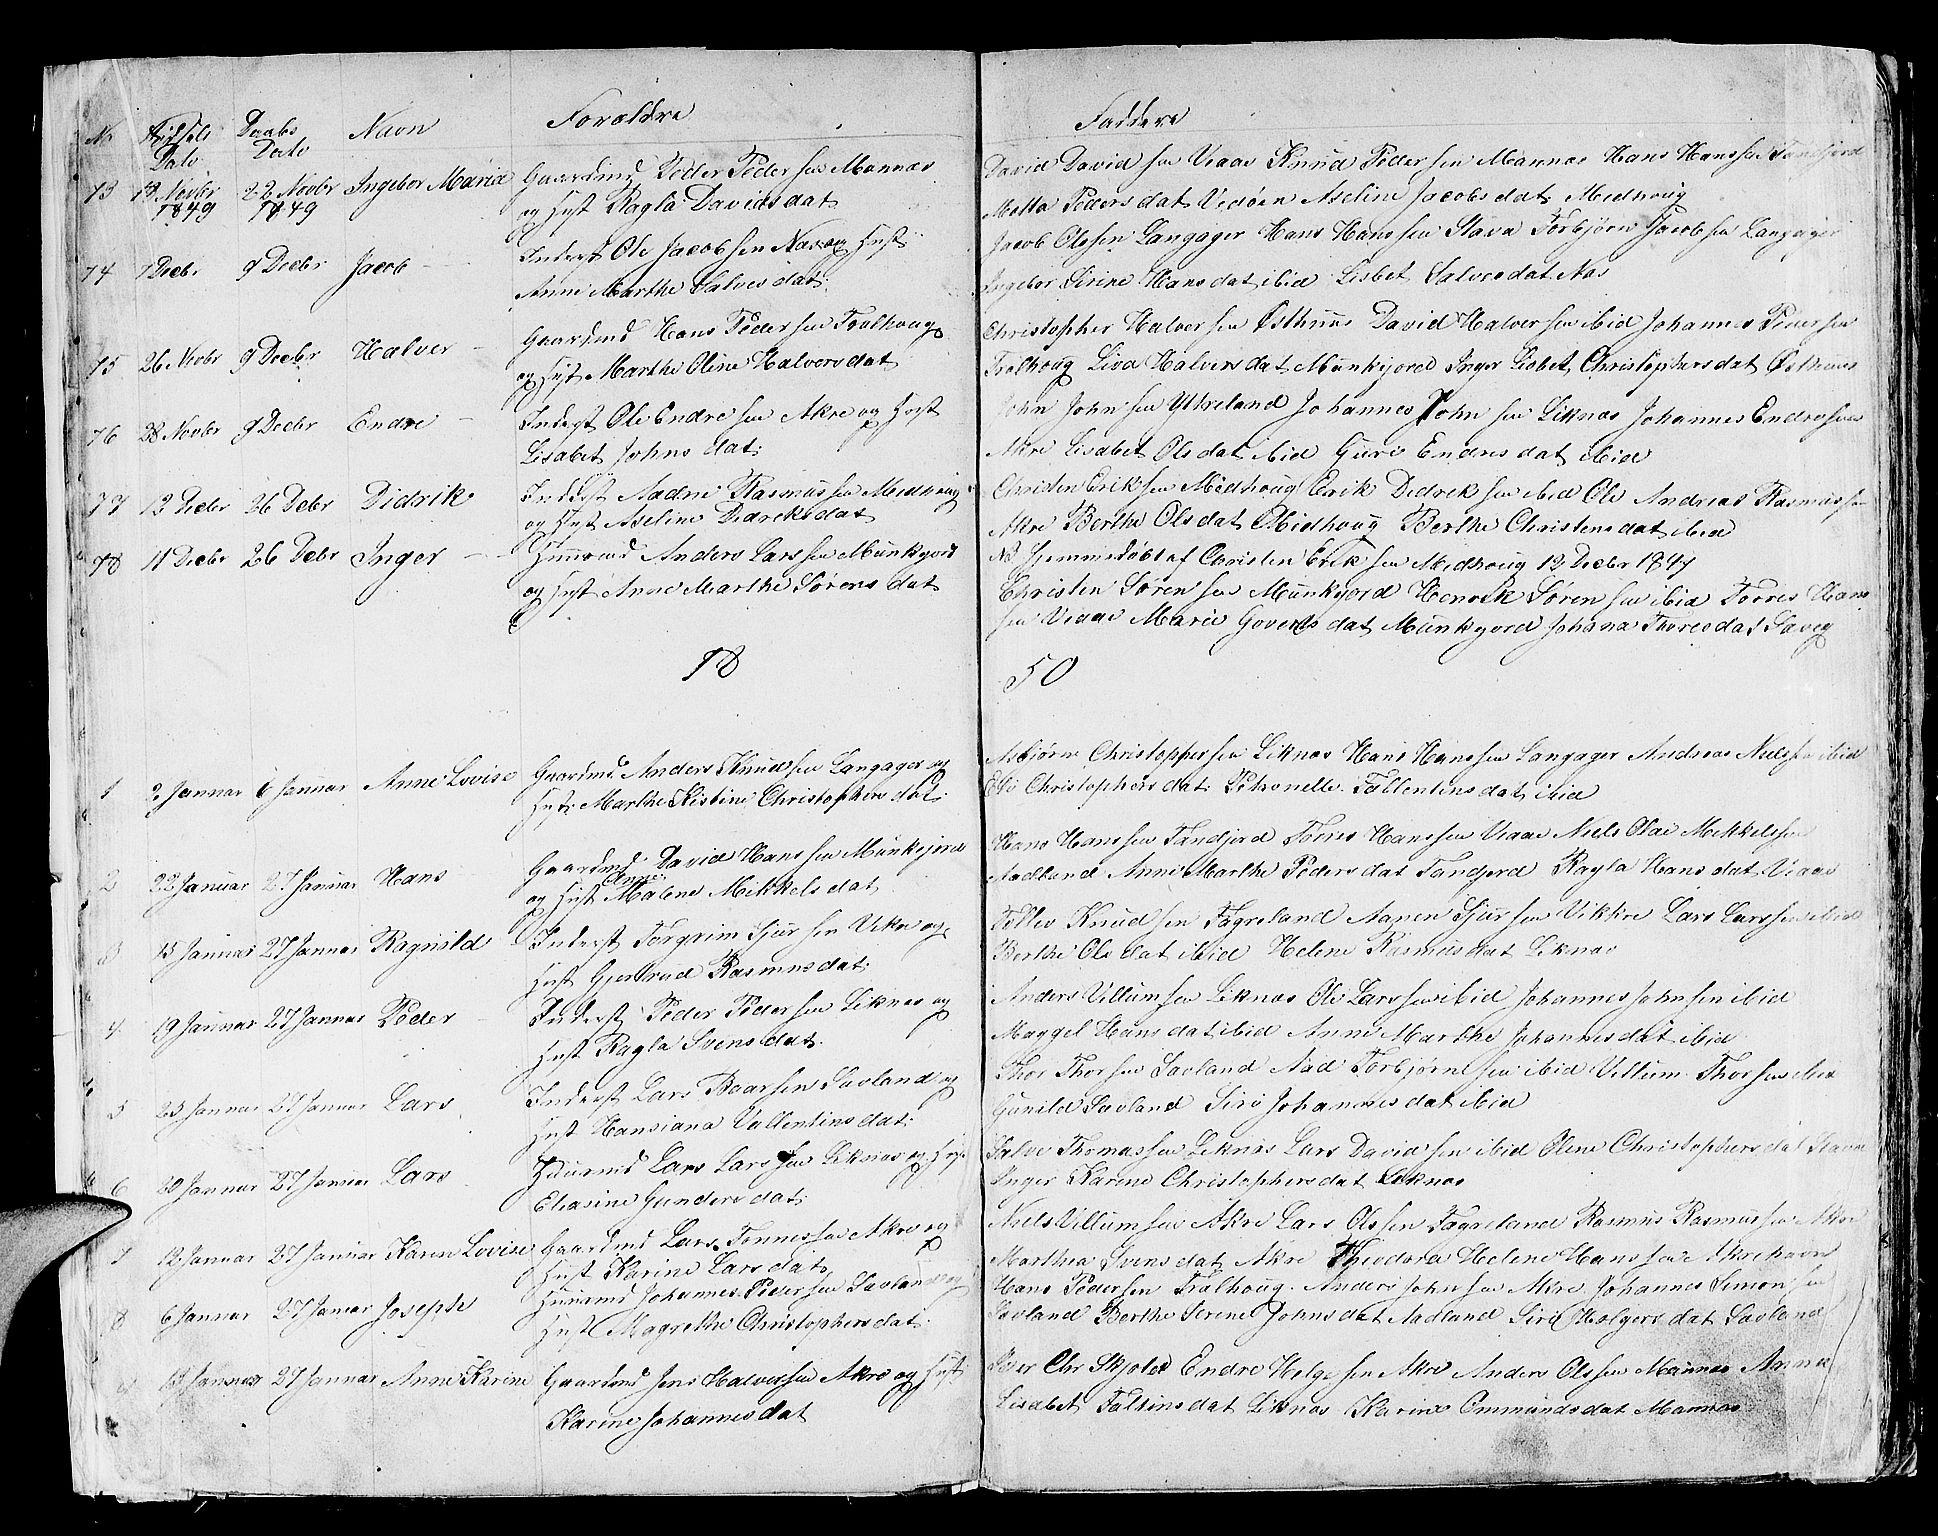 No Fødsels Dato Daabs Dato Navn Forældre Faddere
73 18 Novbr 1849 22 Novbr 1849 Ingebor Maria Gaardmd Peder Peder sen Mannæs
og Hust Ragla Davidsdat
David David sen Viaae Knud Peder sen Mannæs Hans Hanssen Sandfjord
Malla Pedersdat Vedøen Aseline Jacobsdat Medhoug
74 1 Decbr 9 Decbr Jacob Inderst Ole Jacobsen Næs og Hust
Anne Marthe Salvesdat
Jacob Olssen Langager Hans Hanssen Stava Torbjørn Jacobsen Langager
Ingebor Sirine Hansdat ibid Lisbet Salvesdat Næs
75 26 Novbr 9 Decbr Halver Gaardmd Hans Peder sen Tralhoug
og Hust Marthe Oline Halversdat
Christopher Halver sen Østhuus David Halver sen ibid Johannes Peder sen
Tralhoug Liva Halversdat Munkejord Inger Lisbet Christophersdat Østhuus
76 28 Novbr 9 Decbr Endre Inderst Ole Endre sen Akre og Hust
Lisabet Johnsdat
John John sen Ytreland Johannes John sen Liknæs Johannes Endresen
Akre Lisabet Olsdat ibid Guri Endresdat ibid
77 12 Decbr 26 Debr Didrik Inderst Nadne Rasmus sen Medhoug
og Hust Aseline Didreksdat
Christen Erik sen Medhoug Erik Dedrek sen ibid Ole Andreas Rasmus sen
Akre Berthe Olsdat Midhoug Berthe Christensdat ibid
78 11 Decbr 26 Debr Inger Huusmd Anders Lars sen Munkejord
og Hust Anne Marthe Sørensdat
NB Hjemmedøbt af Christen Erik sen Medhoug 12 Decbr 1849
Christen Søren sen Munkejord Henrik Søren sen ibid Torres Hans
sen Viaae Marie Govertsdat Munkejord Johana Thoresdat Saveg
18 50
1 2 Januar 6 Januar Anne Lovise Gaardmd Anders Knud sen Langager og
Hust Marthe Kistine Christophersdat
Asbjørn Christopher sen Liknæs Hans Hanssen Langager Andreas Nielssen ibid
Christophersdat Petronelle Fallentinsdat ibid
2 22 Januar 27 Januar Hans Gaardmd David Hans sen Munkejord
og Hust Anne Malene Mikkelsdat
Hans Hanssen Sandfjord Torres Hanssen Viaae Niels Olai Mikkelsen
Nadland Anne Marthe Pedersdat Sandjord Ragla Hansdat Viaae
3 15 Januar 27 Januar Ragnild Inderst Torgrim Sjur sen Vikre og
Hust Gjertrud Rasmusdat
Tollev Knud sen Fagreland Aanen Sjur sen Vikkre Lars Lars sen ibid
Berthe Olsdat ibid Helene Rasmusdat Liknæs
4 19 Januar 27 Januar Peder Inderst Peder Peder sen Liknæs og
Hust Ragla Svensdat
Anders Villum sen Liknæs Ole Lars sen ibid Johannes Johnsen ibid
Maggel Hansdat ibid Anne Marthe Johannesdat ibid
5 23 Januar 27 Januar Lars Inderst Lars Baarsen Savland og
Hust Hansiana Vallentinsdat
Thor Thor sen Savland Aad Torbjørn sen ibid Villum Thor sen ibid
Gunild Savland Siri Johannesdat ibid
6 20 Januar 27 Januar Lars Huusmd Lars Lars sen Liknæs og Hust
Eliasine Gundersdat
Salve Thomas sen Liknæs Lars David sen ibid Oline Christophersdat Stava
Inger Karine Christophersdat Liknæs
7 12 Januar 27 Januar Karen Lovise Gaardmd Lars Tønnes sen Akre og
Hust Karine Larsdat
Niels Villum sen Akre Lars Olssen Fagreland Rasmus Rasmus sen Akre
Marthea Svensdat Akre Theodora Helene Hans sen Akrehavn
8 6 Januar 27 Januar Joseph Huusmd Johannes Peder sen Savland og
Hust Magrethe Christophersdat
Hans Pedersen Tralhoug Anders John sen Akre Johannes Simon sen
Savland Berthe Serene Johnsdat Nadland Siri Holgersdat Savland
27 Januar Anne Karine Gaardmd Jens Halver sen Akre og Hust
Karine Johannesdat
Iver Chr Skjold Endre Helge sen Akre Anders Olssen Mannæs Anna
Lisabet Faltinsdat Liknæs Karine Ommundsdat Mannæs